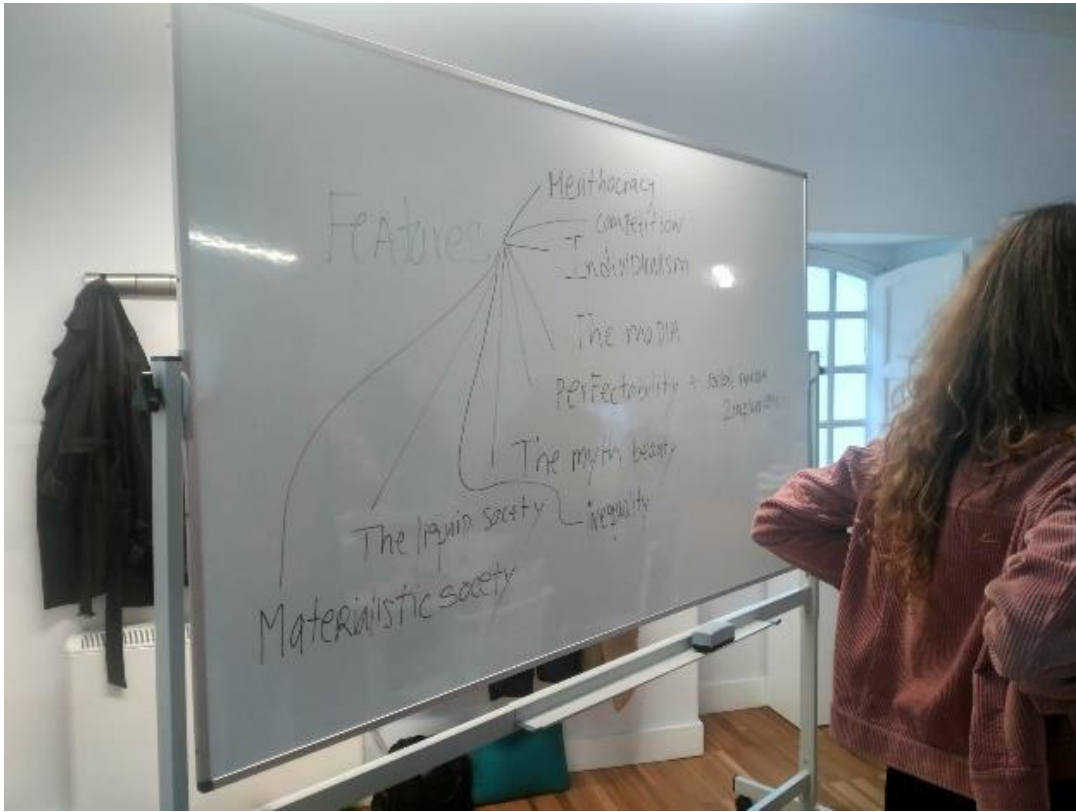 Features
Merithocracy
competition
Individualism
The meDIA
Perfectability +
The myth beauty
inequality
The liquid society
Materialistic socety